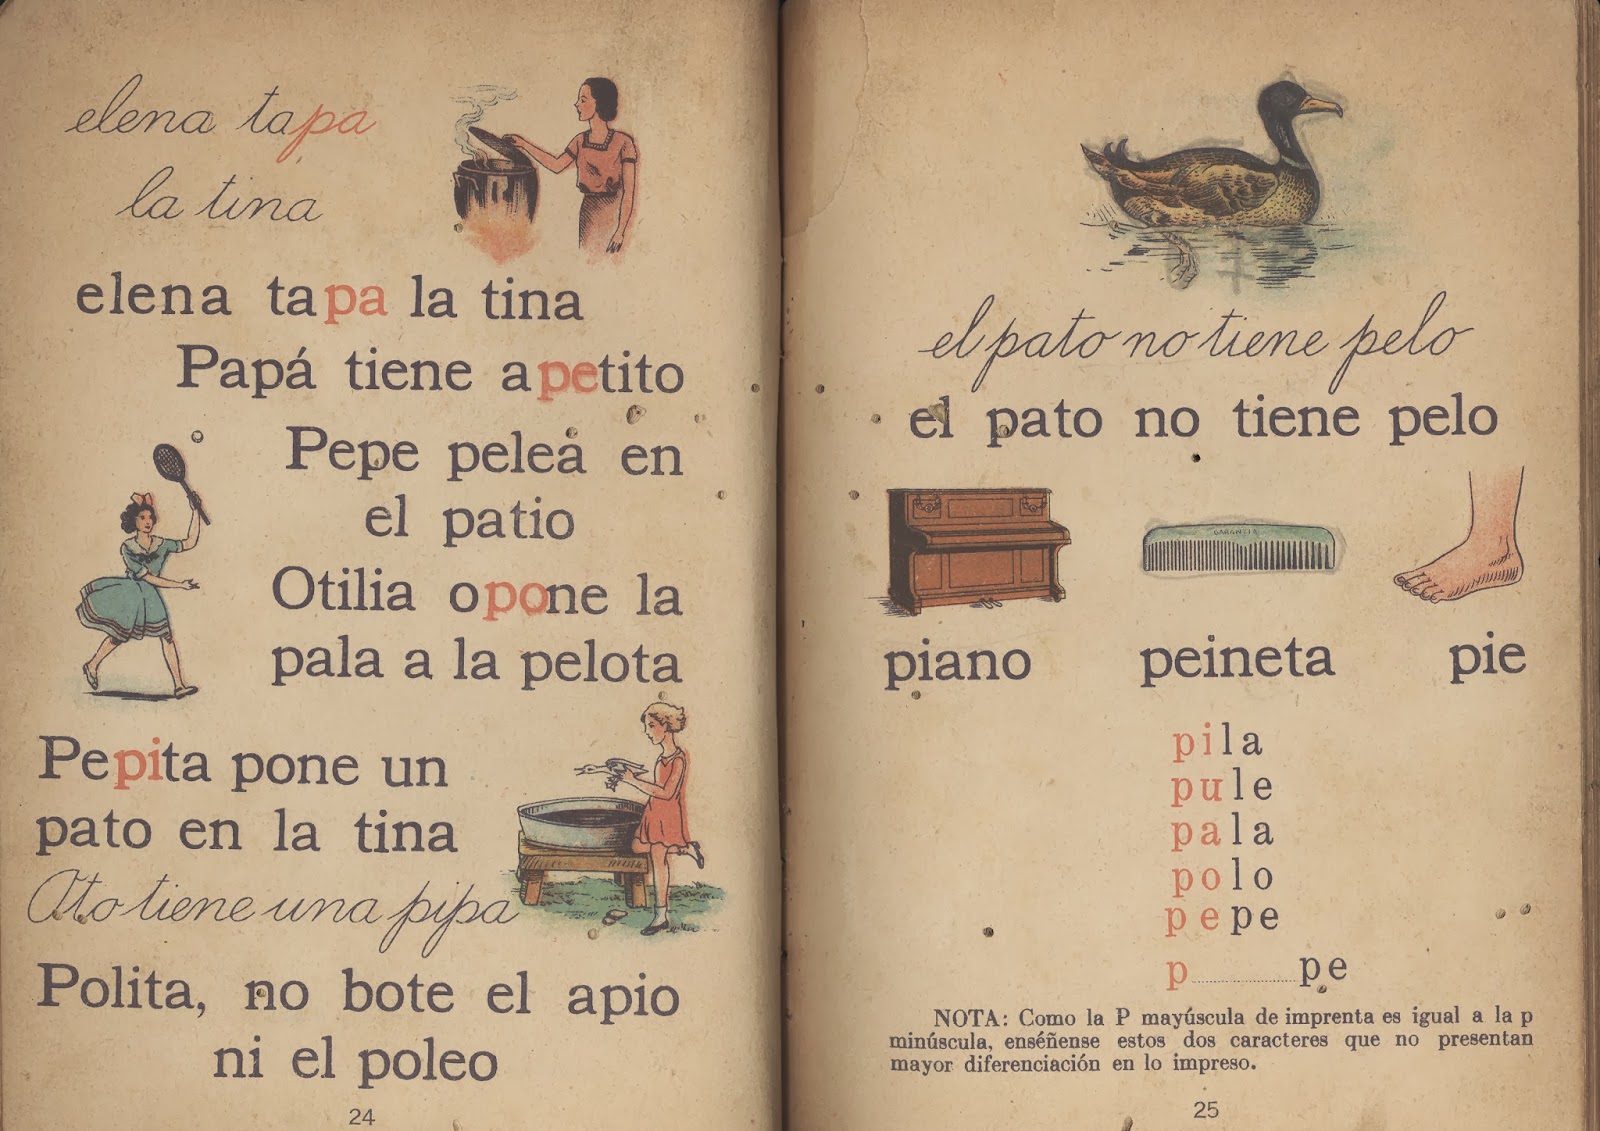 elena tapa
la tina
elena tapa la tina
Papá tiene apetito
Pepe pelea en
el patio
Otilia opone la
pala a la pelota
Pepita pone un
pato en la tina
Oto tiene una pipa
Polita, no bote el apio
ni el poleo
24
el pato no tiene pelo
el pato no tiene pelo
GARANTIA
piano peineta pie
pila
pule
pala
polo
pepe
p..........pe
NOTA: Como la P mayúscula de imprenta es igual a la p
minúscula, enséñense estos dos caracteres que no presentan
mayor diferenciación en lo impreso.
25